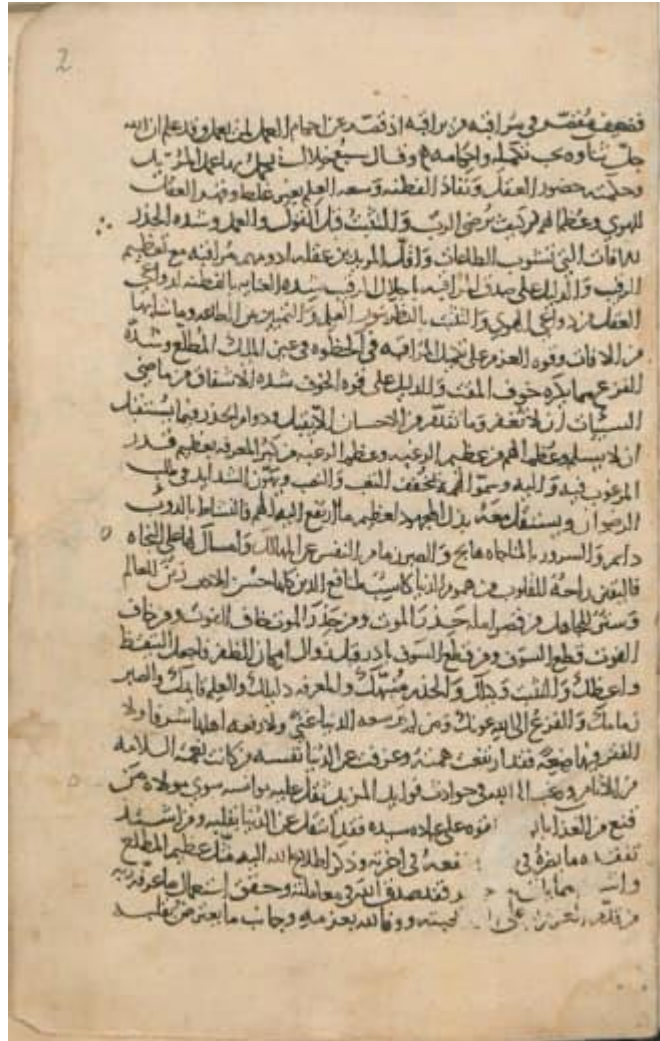 2
في مراقبه من يراقبه اذ قصر عن اتمام العمل لمن يعمل وقد علم ان الله
جل ثناوه يحب تكميله واحكامه وقال سبع خلال يكمل بها عمل المريد
وحكمته حضور العقل ونفاذ الفطنه وسعه العلم بغير غلط وقهر العقل
للهوى وعظم الهم كيف يرضى الرب والتثبت قبل القول والعمل وشده الحذر
للافات التي تشوب الطاعات واقل المريدين غفله ادومهم مراقبه مع تعظيم
الرقيب والدليل على صدق المراقبه اجلال الرقيب شده العنايه بالفطنه لدواعي
العقل من دواعي الهوى والتثبت بالنظر بنور العلم والتمييز بين الطاعه وما شابهها
من الافات وقوه العزم على تكميل المراقبه في الحظوه في عين المليك المطلع وشدة
الفزع مما يكره خوف المقت والدليل على قوه الخوف شده الاشفاق مما مضى
السيئات ان لا تغفر وما تقدم من الاحسان الا يقبل ودوام الحذر فيما يستقبل
ان لا يسلم وعظم الهم من عظيم الرغبه وعظم الرغبه من كبر المعرفه بعظيم قدر
المرغوب فيه واليه وسمو الهمه يخفف التعب والنصب ويهون الشدايد في طلب
الرضوان ويستقل معه بذل المجهود لعظيم ما ارتفع اليه الهم فالنشاط بالدوب
دايم والسرور بالمناجاه هايج والصبر زمام النفس عن المهالك وامساك لها على النجاه
فاليقين راحة للقلوب من هموم الدنيا كاسب لمنافع الدين كلها حسن الادب زين للعالم
وستر للجاهل من قصر امله حذر الموت ومن حذر الموت خاف الفوت ومن خاف
الفوت قطع السوف ومن قطع السوف بادر قبل زوال امكان الظفر فاجعل التيقظ
واعظك والتثبت وكيلك والحذر منبهك والمعرفه دليلك والعلم قايدك والصبر
زمامك والفزع الى الله عونك ومن لم يرسعه الدنيا غنى ولا رفعه اهلها شرفا ولا
الفقر فيها ضعة فقد ارتفعت همته وعزفت عن الدنيا نفسه من كانت نعمته السلامه
من الاثام ورغب الى الله في حوادث فوايد المريد نقل عليه بوانسه سوى مولاه من
قنع من الغذا على عباده سيده فقد اشتغل عن الدنيا بقلبه ومن اشتد
تفقده ما يضره في في اخرته وذكر اطلاع الله اليه مثل عظيم المطلع
فقد صدق الله في معاملته وحقق استعمال ما عرفه ربه
على ووفا لله بعزمه وجانب ما يعترض بقلبه